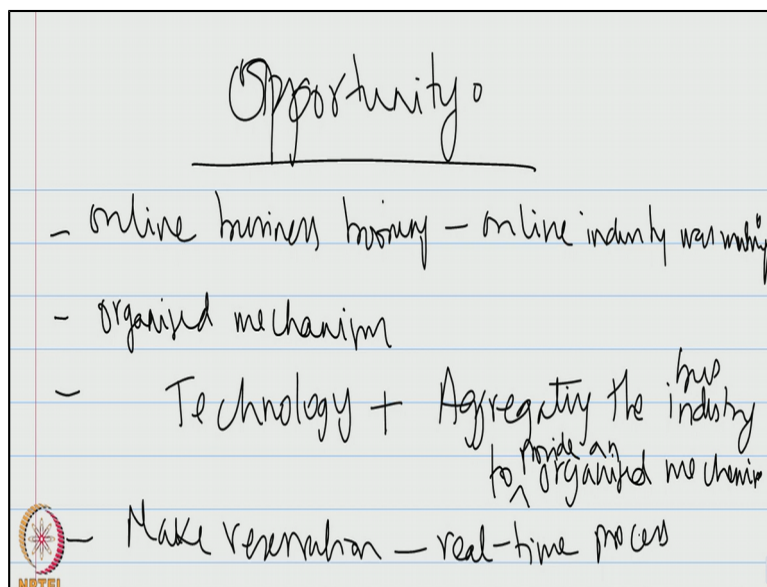 Opportunity:
- online business booming - online industry was
- organised mechanism
bus
- Technology + Aggregating the industry
provide an
to ^ organised mechanis
- Make reservation - real-time process
NPTEL